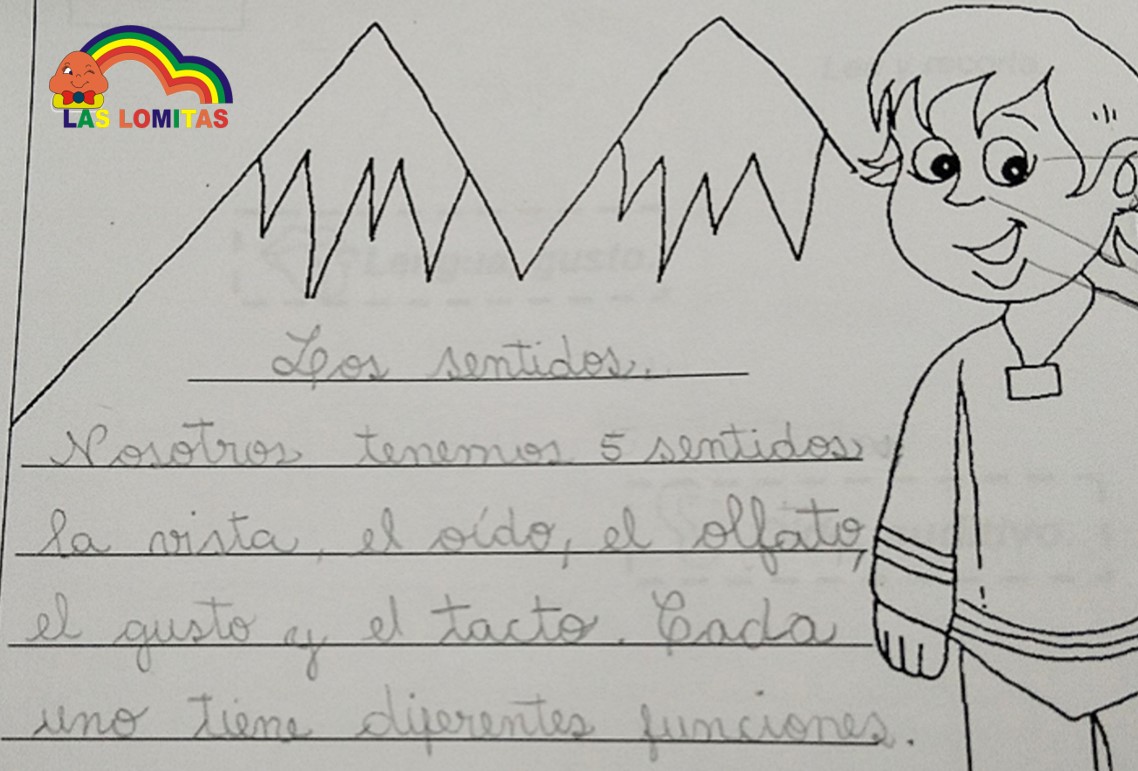 LAS LOMITAS
Los sentidos.
Nosotros tenemos 5 sentidos
la vista, el oído, el olfato,
el gusto y el tacto. Cada
uno tiene diferentes funciones.
Lengua, gusto.